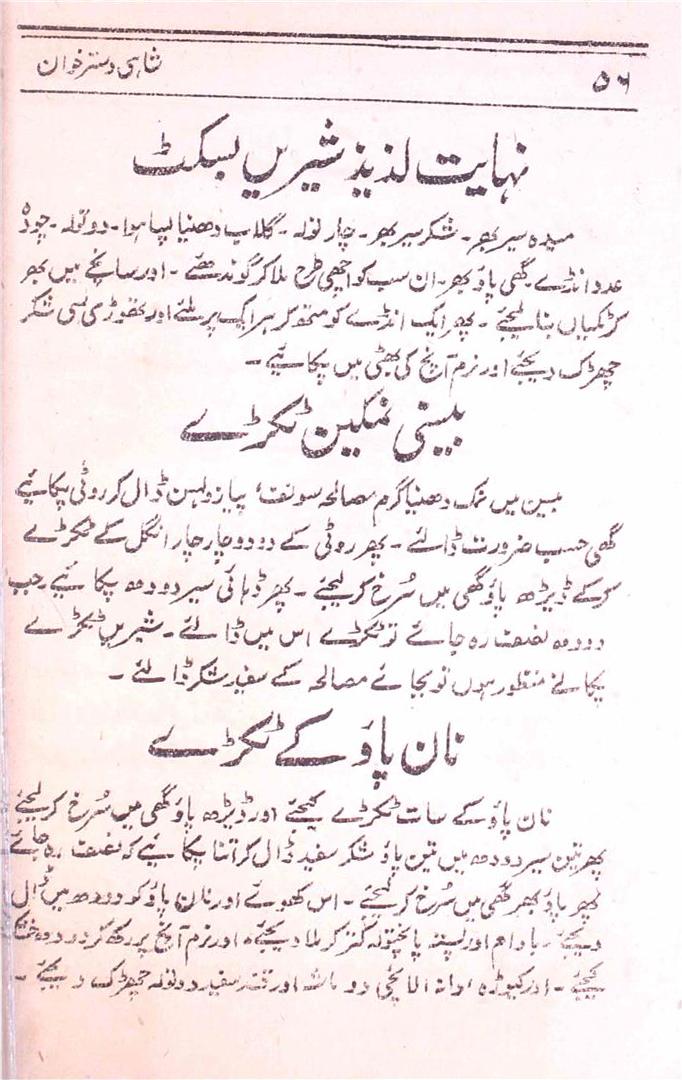 ۵۶
شاہی دسترخوان
نہایت لذیذ شیریں بسکٹ
میدہ سیر بھر۔ شکر سیر بھر۔ چار تولہ۔ گلاب دھنیا پسا ہوا۔ دو تولہ۔ چودہ
عدد انڈے۔ گھی پاؤ بھر۔ ان سب کو اچھی طرح ملا کر گوندھئے۔ اور سانچے میں بھر
کر ٹکیاں بنا لیجئے۔ پھر ایک انڈے کو متھو کر ہر ایک پر ملئے اور تھوڑی سی شکر
چھڑک دیجئے اور نرم آنچ کی بھٹی میں پکائیے۔
بیسنی نمکین ٹکڑے
بیسن میں نمک دھنیا گرم مصالحہ سونف، پیاز و لہسن ڈال کر روٹی پکائیے
گھی حسب ضرورت ڈالئے۔ پھر روٹی کے دو دو چار چار انگل کے ٹکڑے
کرکے ڈیڑھ پاؤ گھی میں سُرخ کر لیجئے۔ پھر ڈہائی سیر دودھ پکائیے جب
دودھ نصف رہ جائے تو ٹکڑے اس میں ڈالئے۔ شیریں ٹکڑے
پکانے منظور ہوں تو بجائے مصالحہ کے سفید شکر ڈالئے۔
نان پاؤ کے ٹکڑے
نان پاؤ کے سات ٹکڑے کیجئے اور ڈیڑھ پاؤ گھی میں سُرخ کر لیجئے
پھر تین سیر دودھ میں تین پاؤ شکر سفید ڈال کر اتنا پکائیے کہ نصف رہ جائے
پھر پاؤ بھر گھی میں سُرخ کر لیجئے۔ اس کھوئے اور نان پاؤ کو دودھ میں ڈال
دیجئے۔ بادام اور پستہ پانچتولہ کتر کر ملا دیجئے، اور نرم آنچ پر رکھ کر دودھ خشک
کیجئے۔ اور کیوڑہ دانہ الائچی دو ماشہ اور قند سفید دو تولہ چھڑک دیجئے۔